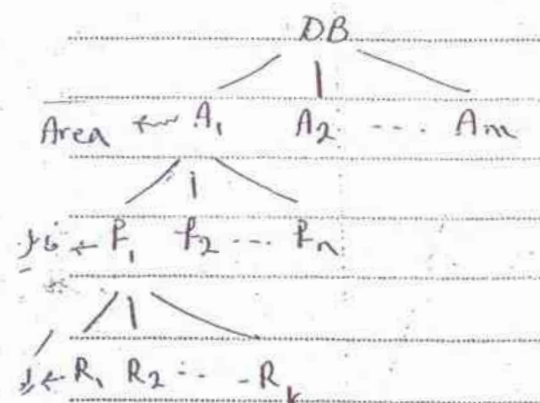 DB
Area ← A₁ A₂ .... Am
← F₁ F₂ ... Fn
← R₁ R₂ .. - Rk